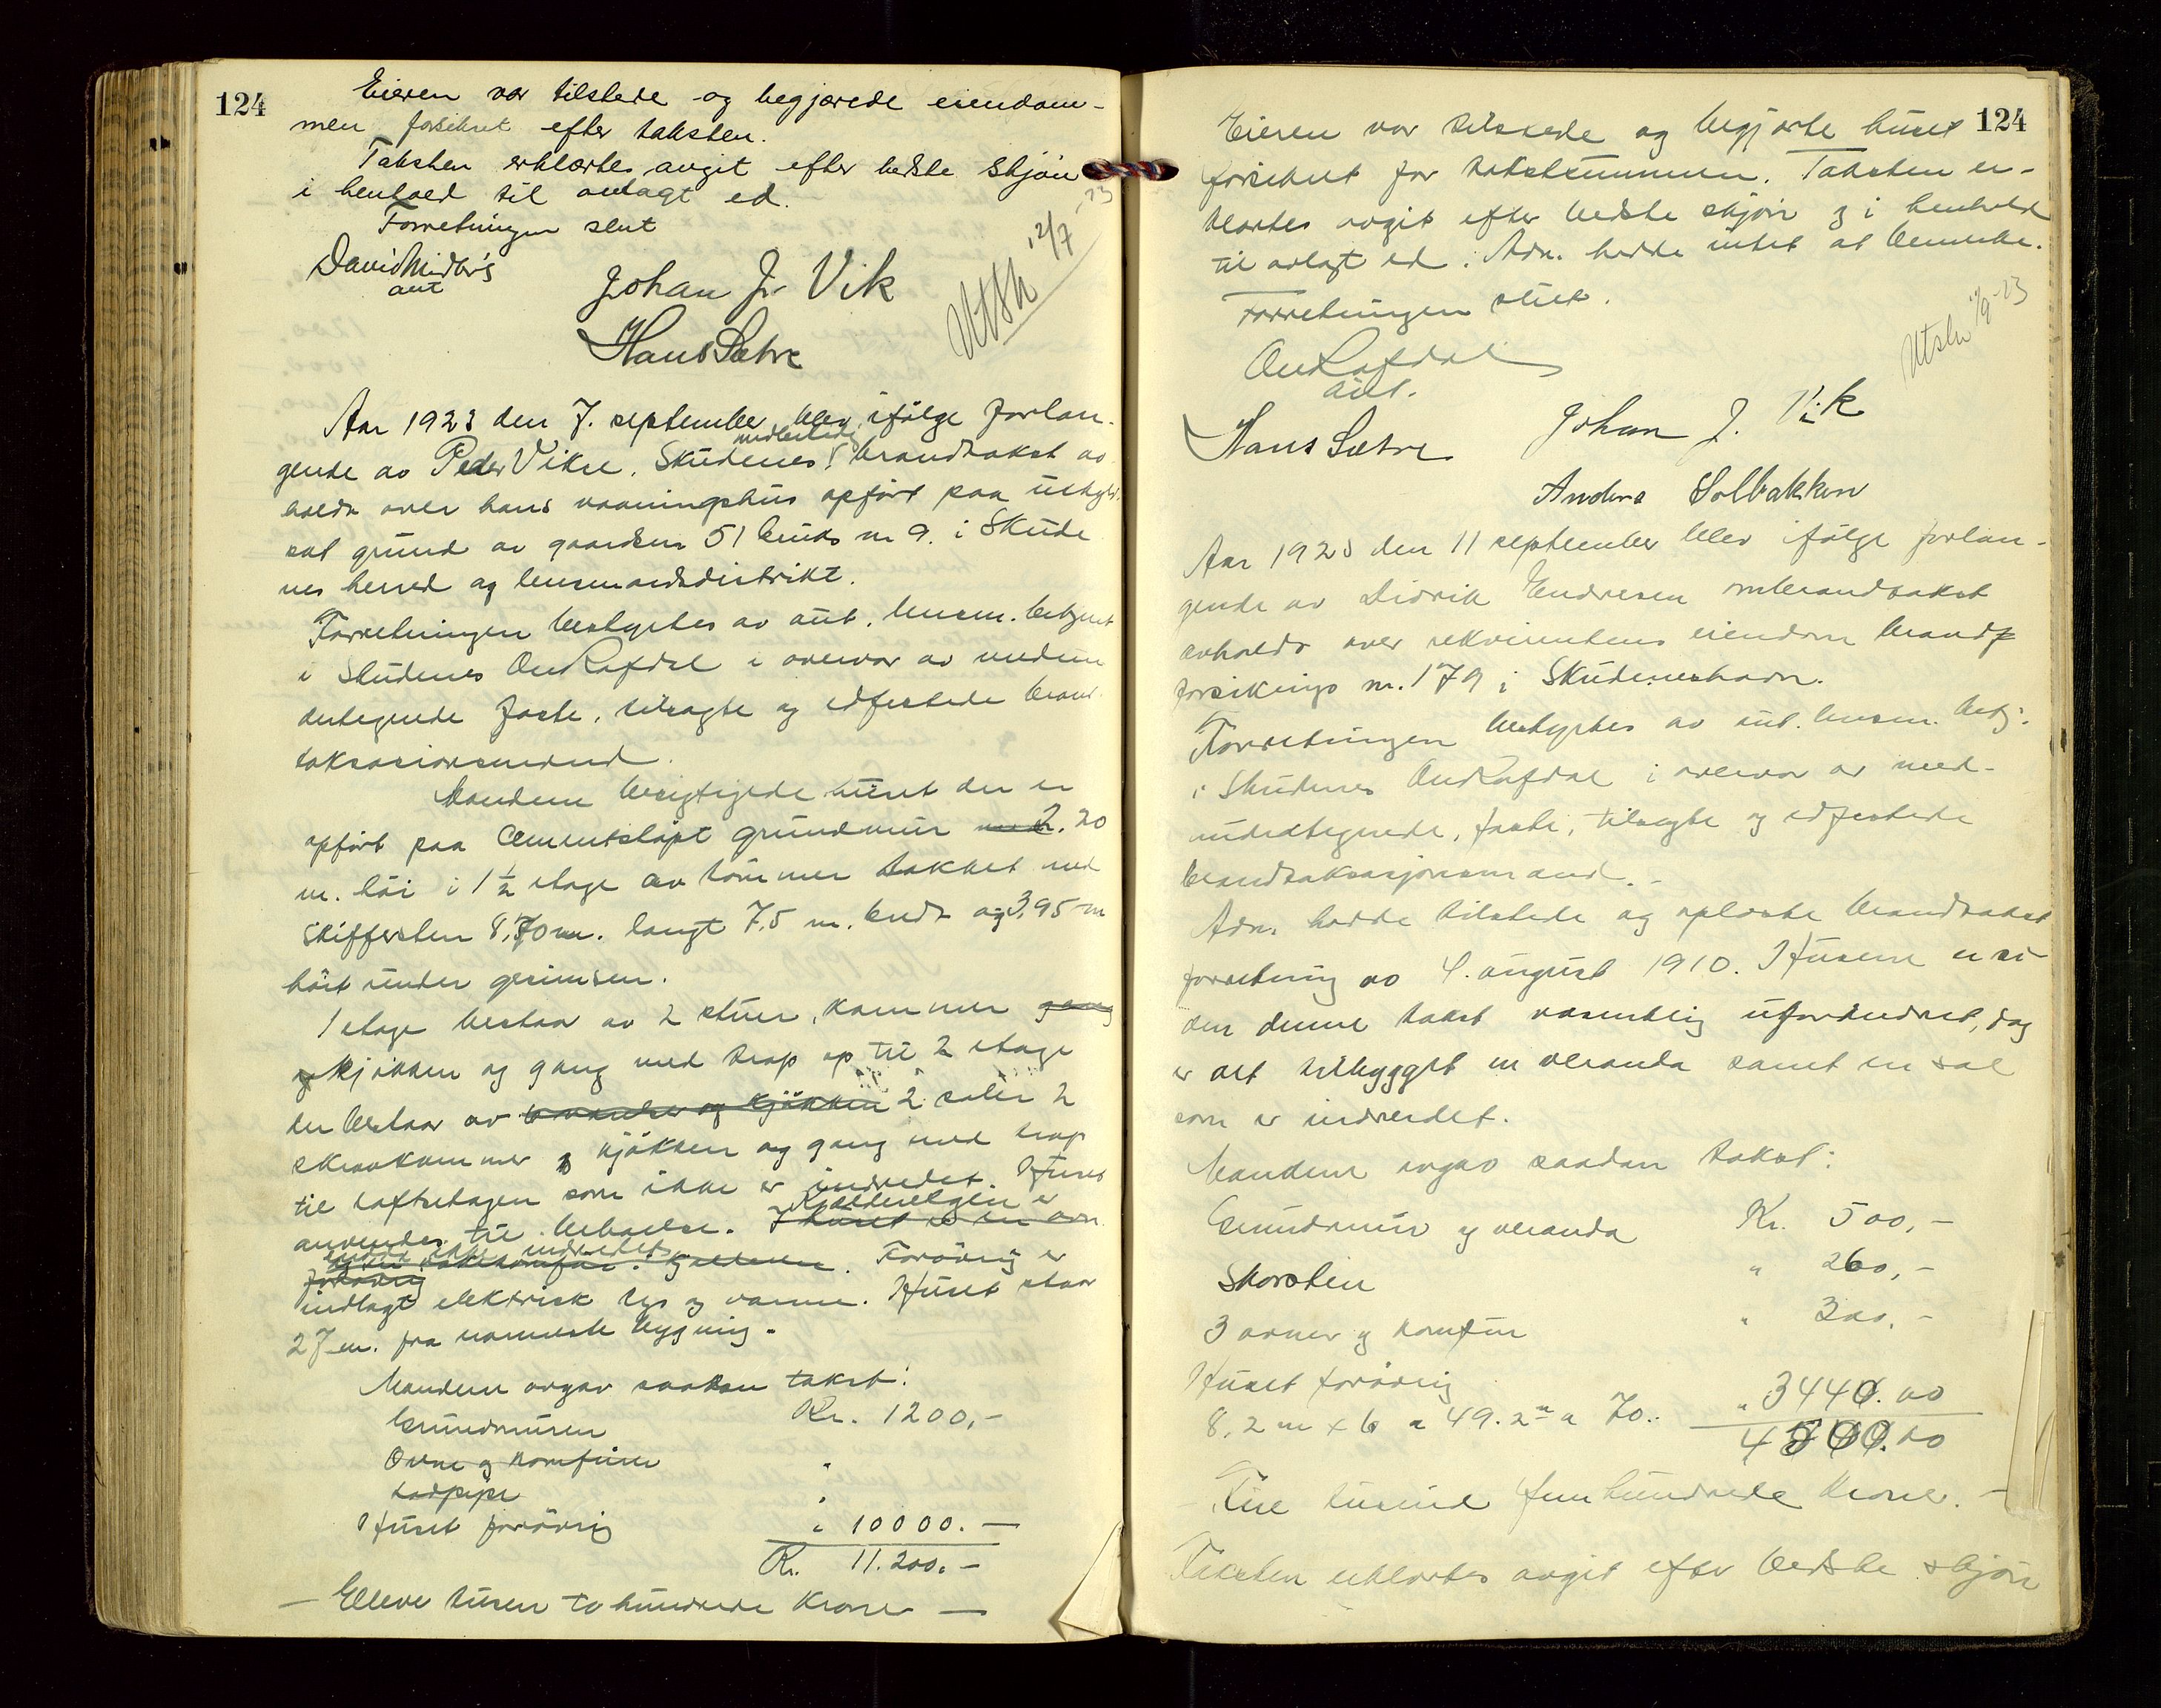 124
Eieren var tilstede og begjærede eiendom-
men forsikret efter taksten.
Taksten erklærtes avgit efter bedste skjøn
i henhold til avlagt ed.
Forretningen slut
David Midbø's
aut
Johan J. Vik
Hans Sætre
Utsk 12/7 -23
Aar 1923 den 7. september blev ifølge forlan-
gende av Peder Vikse, Skudenes brandtakst av-
holdt over hans vaaningshus opført paa utskyld-
sat grund av gaardsnr 51 bruks nr 9. i Skude
nes herred og lensmandsdistrikt.
Forretningen bestyrtes av aut. lensm. betjent
i Skudenes Ou Rafdal i overvær av medun
dertegnede faste, tilsagte og edfestede brand
taksasionsmænd.
Mændene besigtigede huset der er
opført paa Cementstøpt grundmur 2.20
m. høi i 1½ etage av tømmer takket med
skiffersten 8,70 m. langt 7,5 m. bredt og 3,95 m
høit under gesimsen.
1 etage bestaar av 2 stuer, kammer gang
kjøkken og gang med trap op til 2 etage
der bestaar av 2 saler 2
skraakammer kjøkken og gang med trap
til loftsetagen som ikke er indredet. Huset
anvendes til beboelse. Kjælderetagen er
endda ikke indredet. Forøvrig er
indlagt elektrisk lys og varme. Huset staar
27 m. fra nærmeste bygning.
Mændene avgav saadan takst:
Grundmuren Kr. 1200,-
Ovne og komfurer "
Ladpipe "
Huset forøvrig " 10000.-
Kr. 11.200.-
- Elleve tusen to hundrede Kroner -
124
Eieren var tilstede og begjærte huset
forsikret for takstsummen. Taksten er-
klærtes avgit efter bedste skjøn og i henhold
til avlagt ed. Adm. hadde intet at bemerke.
Forretningen slut.
Ou Rafdal
aut.
Utskr 11/9-23
Hans Sætre
Johan J. Vik
Anders Solbakken
Aar 1923 den 11 september blev ifølge forlan-
gende av Didrik Endresen ombrandtakst
avholdt over rekvirentens eiendom brand
forsikrings nr. 179 i Skudeneshavn.
Forretningen bestyrtes av aut. lensm. betj.
i Skudenes Ou Rafdal i overvær av med-
undertegnede, faste, tilsagte og edfestede
brandtaksasjonsmænd.-
Adm. hadde tilstede og oplæste brandtakst
forretning av 4. august 1910. Husene er si-
den denne takst væsentlig uforandret, dog
er det tilbygget en veranda samt en sal
som er indredet.
Mændene avgav saadan takst:
Grundmur og veranda Kr. 500,-
Skorsten " 260,-
3 ovner og komfur " 300,-
Huset forøvrig
8,2 m x 6 = 49.2 m a 70.. " 3440.00
4500.00
- Fire tusind fem hundrede Kroner. -
Taksten erklærtes avgit efter bedste skjøn